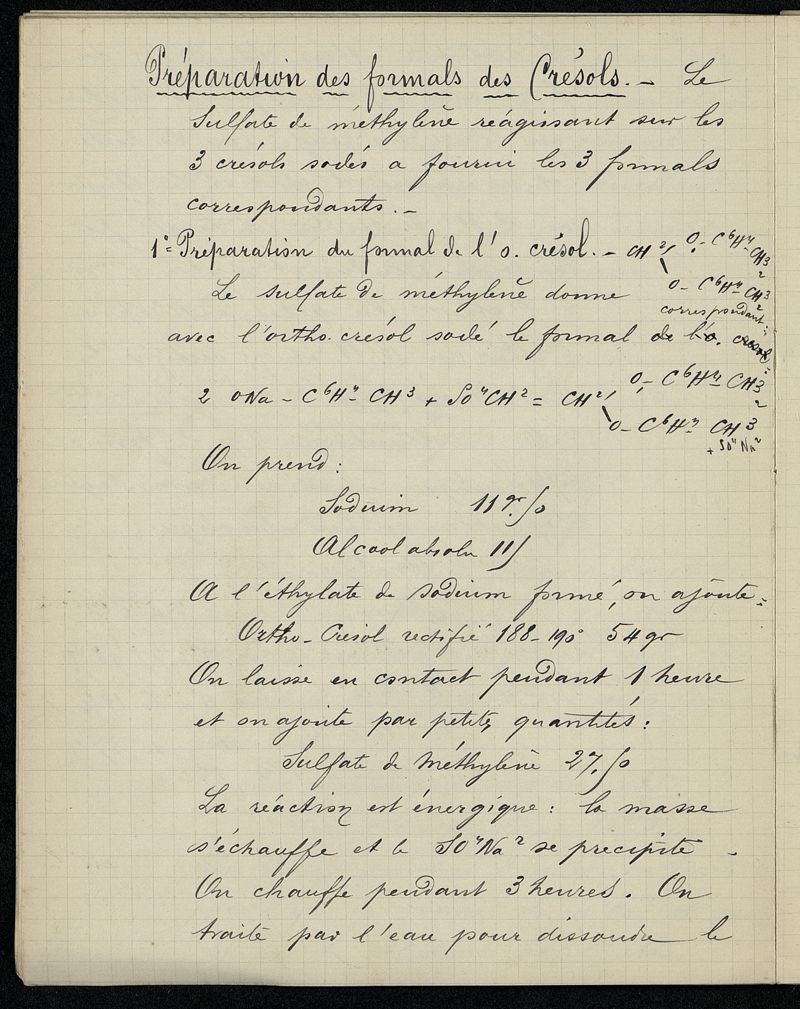 Préparation des formals des Crésols. – Le
Sulfate de méthylène réagissant sur les
3 crésols sodés a fourni les 3 formals
correspondants. –
1º= Préparation du formal de l'o. crésol. – CH² O – C⁶H⁴ – CH³
O – C⁶H⁴ – CH³
Le sulfate de méthylène donne
correspondant:
avec l'ortho. crésol sodé le formal de l'o. crésol =
2 ONa – C⁶H⁴ – CH³ + SO⁴CH² = CH² O – C⁶H⁴ – CH³
O – C⁶H⁴ – CH³
+ SO⁴Na²
On prend:
Sodium 11 gr.
Alcool absolu
A l'éthylate de sodium formé, on ajoute =
Ortho – Crésol rectifié 188 – 190° 54 gr
On laisse en contact pendant 1 heure
et on ajoute par petites quantités:
Sulfate de Méthylène 27.
La réaction est énergique: la masse
s'échauffe et le SO⁴Na² se précipite –
On chauffe pendant 3 heures. On
traite par l'eau pour dissoudre le